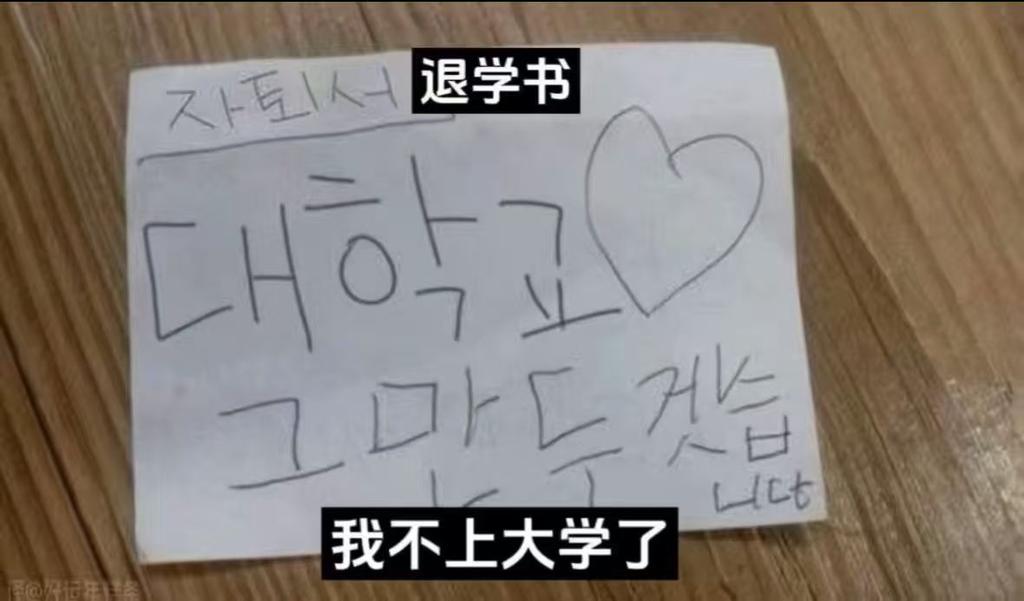 자퇴서 退学书
대학교♡
그만두겟습
니다
我不上大学了